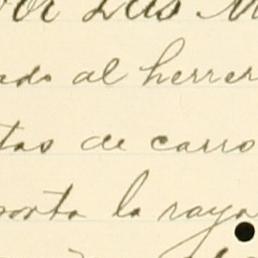 por Luis M
ado al herrer
tas de carro
porta la raya